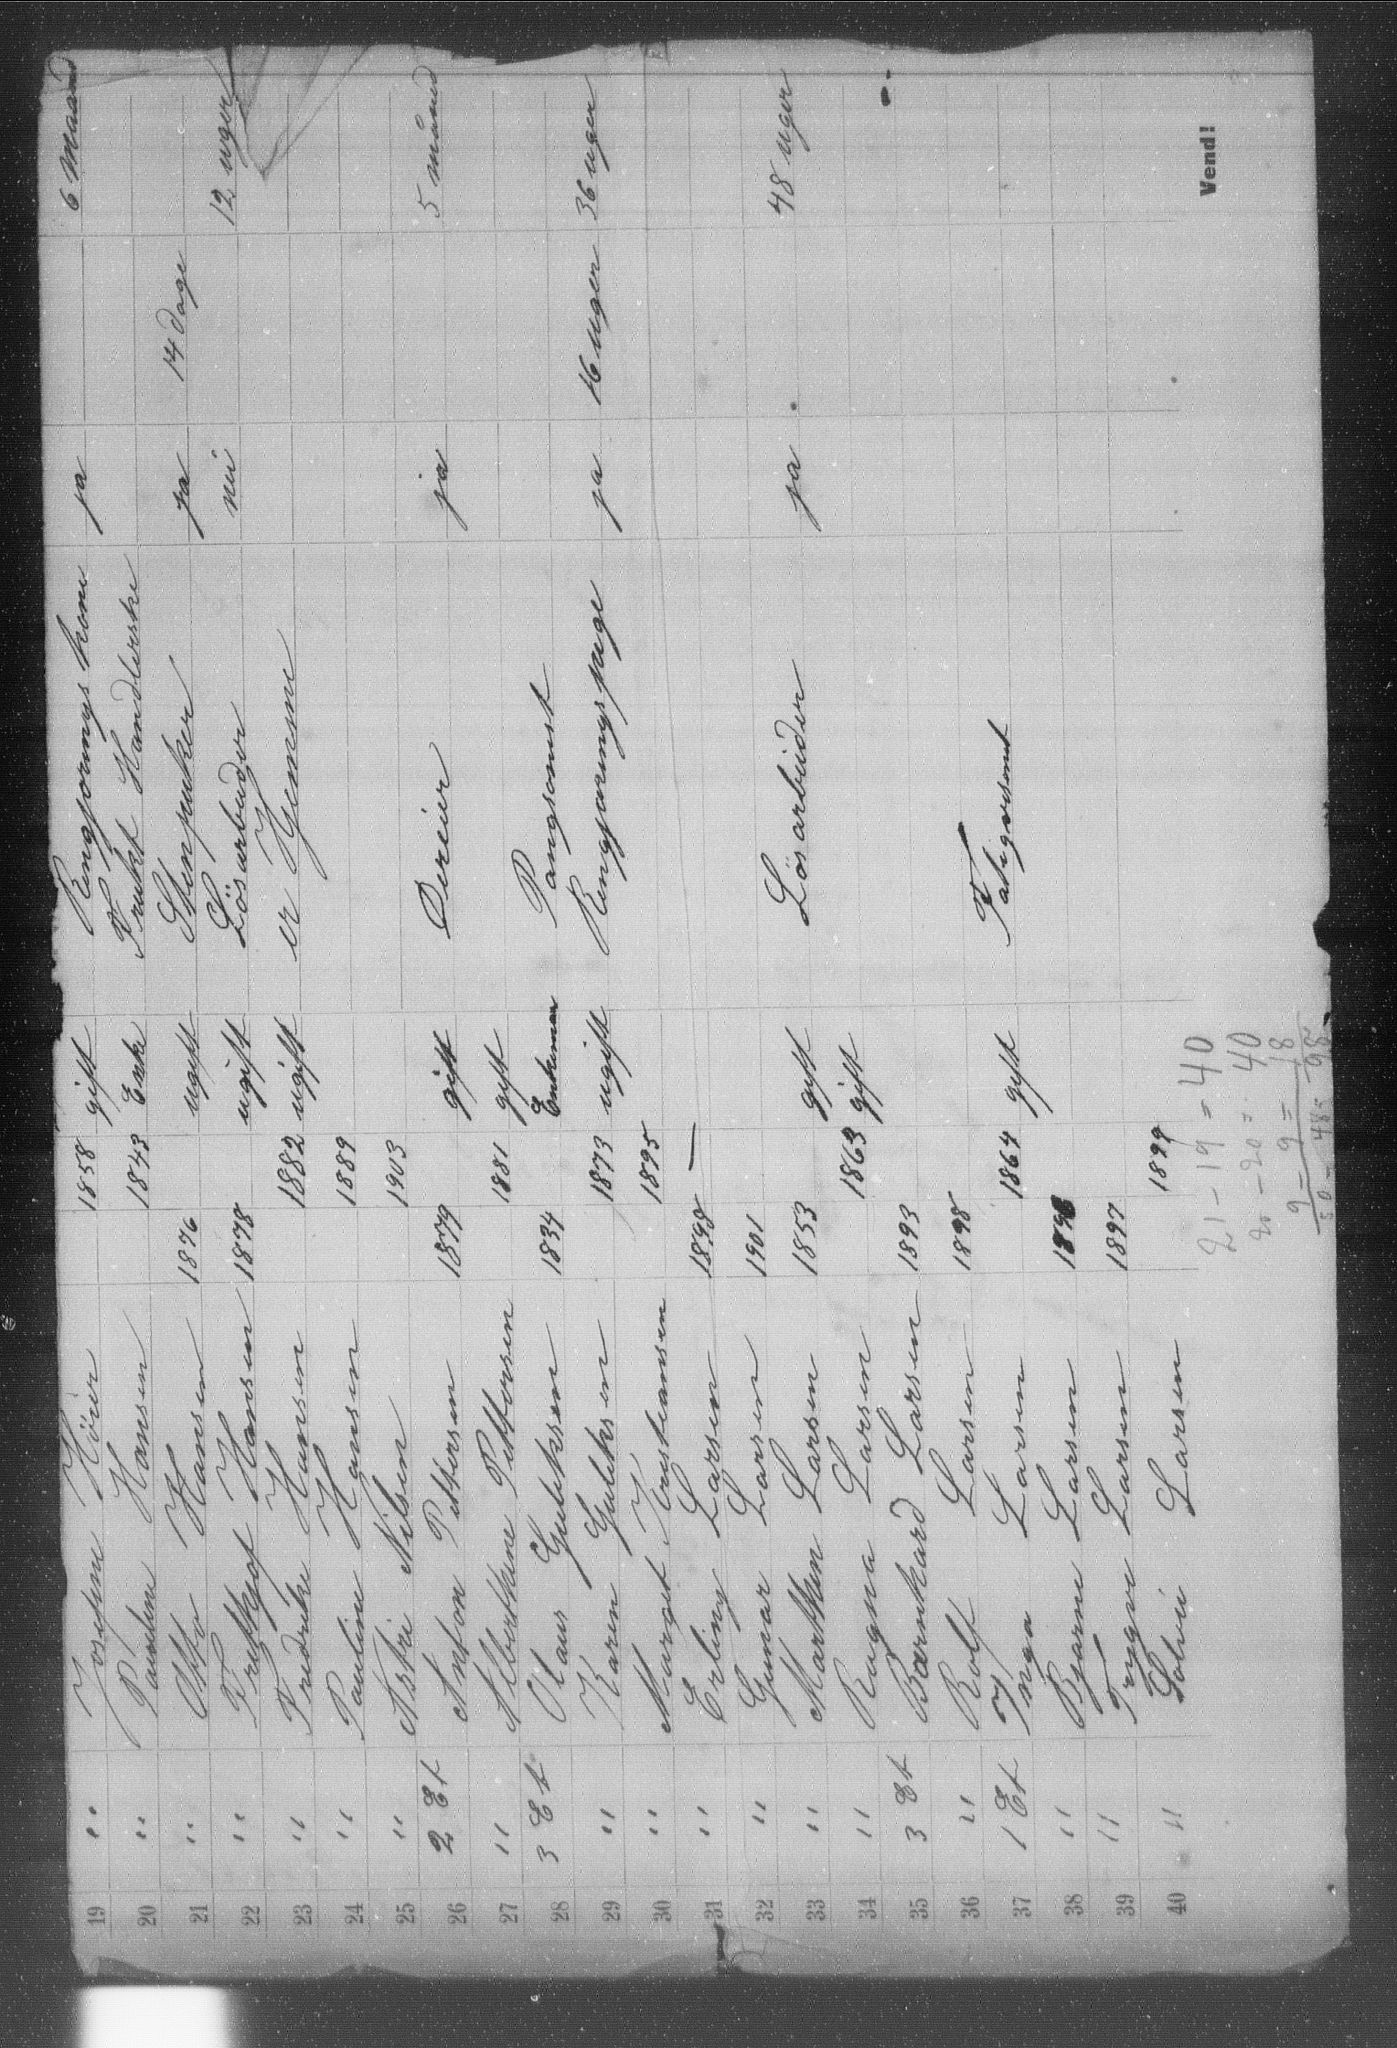 19 " Josefine Höier 1858 gift Rengjörings kone ja 6 maand
20 " Pauline Hansen 1843 Enke Frukt Handlerske
21 " Otto Hansen 1876 ugift Stenpuker ja 14 dage
22 " Fritthjof Hansen 1878 ugift Lösarbeider nei 12 uger
23 " Fredrike Hansen 1882 ugift er Hjemme
24 " Pauline Hansen 1889
25 " Astri Nilsen 1903
26 2 Et Anton Pettersen 1879 gift Dreier ja 5 måned
27 " Alberthine Pettersen 1881 gift
28 3 Et Olaus Guliksen 1834 Enkeman Pangsonist
29 " Karen Guliksen 1873 ugift Rengjøringspige ja 16 uger 36 uger
30 " Margit Kristiansen 1895
31 " Erling Larsen 1898 —
32 " Gunar Larsen 1901
33 " Marthin Larsen 1853 gift Lösarbeider ja 48 uger
34 " Ragna Larsen 1863 gift
35 3 Et Bernhard Larsen 1893
36 " Rolf Larsen 1898
37 1 Et Inga Larsen 1864 gift
38 " Bjarne Larsen
39 " Trygve Larsen 1897
40 " Solvei Larsen 1899
21 - 19 = 40
20 - 20 = 40
9 - 9 = 18
50 - 48 - 98
Vend!